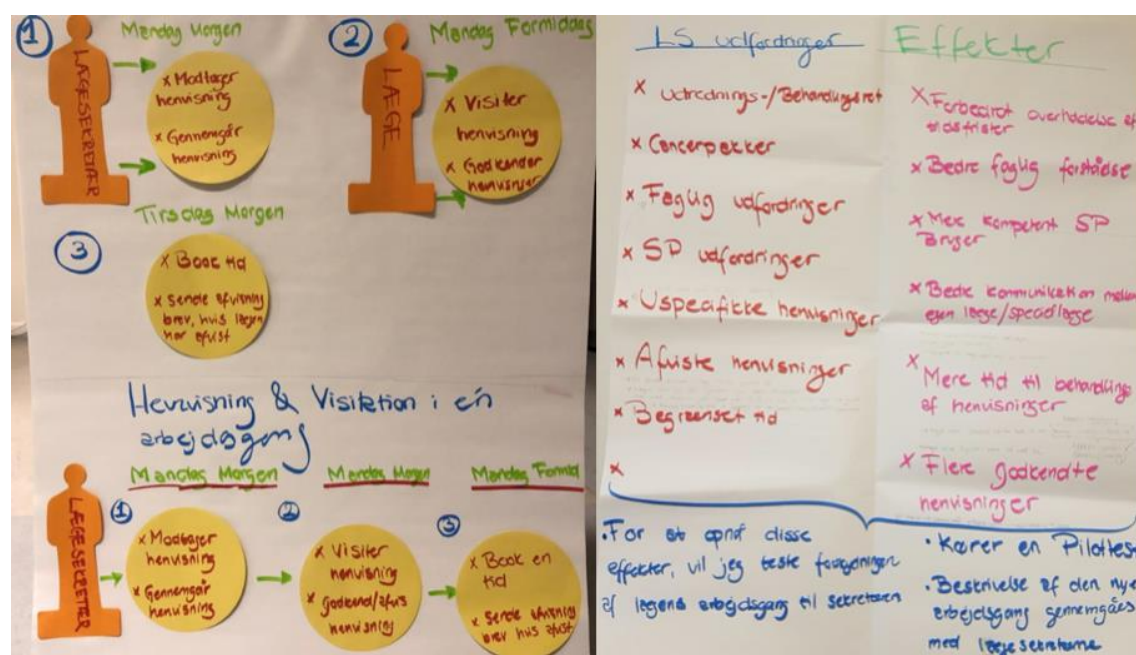 1
Mandag Morgen
LÆGESEKRETÆR
x Modtager
henvisning
x Gennemgår
henvisning
2
Mandag Formiddag
LÆGE
x Visiter
henvisning
x Godkender
henvisninger
3
Tirsdag Morgen
x Book tid
x Sende afvisning
brev, hvis lægen
har afvist
Henvisning & Visitation i én
arbejdsgang
LÆGESEKRETER
Mandag Morgen
1
x Modtager
henvisning
x Gennemgår
henvisning
Mandag Morgen
2
x Visiter
henvisning
x godkend/afvis
henvisning
Mandag Formid
3
x Book en
tid
x Sende afvisning
brev hvis afvist
LS udfordringer
x Udrednings-/Behandlingsret
x Cancerpakker
x Faglig udfordringer
x SP udfordringer
x Uspecifikke henvisninger
x Afviste henvisninger
x Begrænset tid
x
Effekter
x Forbedret overholdelse af
tidsfrister
x Bedre faglig forståelse
x Mere kompetent SP
Bruger
x Bedre kommunikation mellem
egen læge/speciallæge
x Mere tid til behandling
af henvisninger
x Flere godkendte
henvisninger
• For at opnå disse
effekter, vil jeg teste
af lægens arbejdsgang til sekretæren
• Kører en Pilottest
• Beskrivelse af den nye
arbejdsgang gennemgåes
med lægesekretærerne